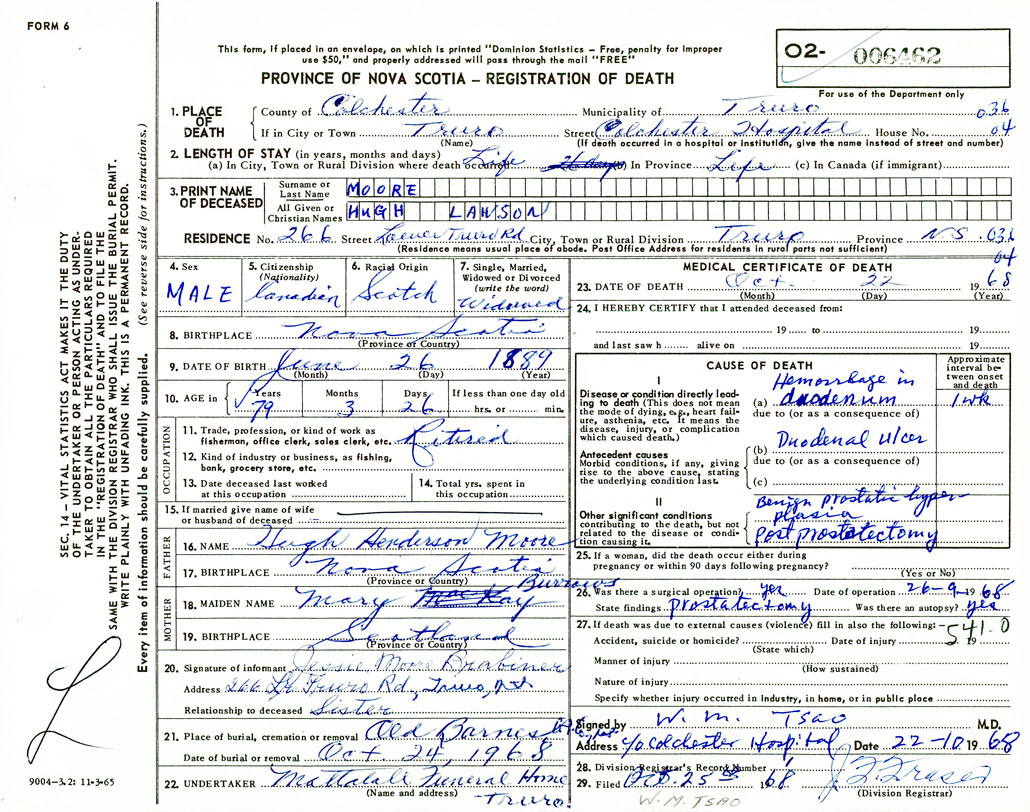 FORM 6
This form, if placed in an envelope, on which is printed "Dominion Statistics – Free, penalty for improper
use $50," and properly addressed will pass through the mail "FREE"
PROVINCE OF NOVA SCOTIA – REGISTRATION OF DEATH
O2- 006462
For use of the Department only
1. PLACE OF DEATH
County of Colchester Municipality of Truro 036
If in City or Town Truro Street Colchester Hospital House No. 04
(Name) (If death occurred in a hospital or institution, give the name instead of street and number)
2. LENGTH OF STAY (in years, months and days)
(a) In City, Town or Rural Division where death occurred Life (b) In Province Life (c) In Canada (if immigrant)
3. PRINT NAME OF DECEASED
Surname or Last Name MOORE
All Given or Christian Names HUGH LAWSON
RESIDENCE No. 266 Street Lower Truro Rd City, Town or Rural Division Truro Province N S 036
(Residence means usual place of abode. Post Office Address for residents in rural parts not sufficient) 04
4. Sex MALE
5. Citizenship (Nationality) Canadian
6. Racial Origin Scotch
7. Single, Married, Widowed or Divorced (write the word) Widowed
8. BIRTHPLACE Nova Scotia
(Province or Country)
9. DATE OF BIRTH June 26 1889
(Month) (Day) (Year)
10. AGE in Years 79 Months 3 Days 26 If less than one day old hrs. or min.
OCCUPATION
11. Trade, profession, or kind of work as
fisherman, office clerk, sales clerk, etc. Retired
12. Kind of industry or business, as fishing,
bank, grocery store, etc.
13. Date deceased last worked
at this occupation
14. Total yrs. spent in
this occupation
15. If married give name of wife
or husband of deceased
FATHER
16. NAME Hugh Henderson Moore
17. BIRTHPLACE Nova Scotia
(Province or Country)
MOTHER
18. MAIDEN NAME Mary MacKay Burrows
19. BIRTHPLACE Scotland
(Province or Country)
20. Signature of informant Jessie Moore
Address 266 Lr Truro Rd, Truro, N.S.
Relationship to deceased Sister
21. Place of burial, cremation or removal Old Barnes
Date of burial or removal Oct 24, 1968
22. UNDERTAKER Mattatall Funeral Home
(Name and address) Truro
MEDICAL CERTIFICATE OF DEATH
23. DATE OF DEATH Oct. 22 1968
(Month) (Day) (Year)
24. I HEREBY CERTIFY that I attended deceased from:
19 to 19
and last saw h alive on 19
CAUSE OF DEATH
Approximate interval between onset and death
I
Disease or condition directly leading to death (This does not mean the mode of dying, e.g., heart failure, asthenia, etc. It means the disease, injury, or complication which caused death.)
(a) Hemorrhage in duodenum 1 wk
due to (or as a consequence of)
Antecedent causes
Morbid conditions, if any, giving rise to the above cause, stating the underlying condition last.
(b) Duodenal ulcer
due to (or as a consequence of)
(c)
II
Other significant conditions
contributing to the death, but not related to the disease or condition causing it.
Benign prostatic hyper-
plasia
Post prostatectomy
25. If a woman, did the death occur either during
pregnancy or within 90 days following pregnancy?
(Yes or No)
26. Was there a surgical operation? yes Date of operation 26-9-1968
State findings prostatectomy Was there an autopsy? yes
27. If death was due to external causes (violence) fill in also the following:- 541.0
Accident, suicide or homicide? Date of injury 19
(State which)
Manner of injury
(How sustained)
Nature of injury
Specify whether injury occurred in industry, in home, or in public place
Signed by W. M. TSAO M.D.
Address c/o Colchester Hospital Date 22-10 1968
28. Division Registrar's Record Number
29. Filed Oct. 25th 1968
(Division Registrar)
W. M. TSAO
SEC. 14 – VITAL STATISTICS ACT MAKES IT THE DUTY
OF THE UNDERTAKER OR PERSON ACTING AS UNDER-
TAKER TO OBTAIN ALL THE PARTICULARS REQUIRED
IN THE "REGISTRATION OF DEATH" AND TO FILE THE
SAME WITH THE DIVISION REGISTRAR WHO SHALL ISSUE THE BURIAL PERMIT.
WRITE PLAINLY WITH UNFADING INK. THIS IS A PERMANENT RECORD.
Every item of information should be carefully supplied. (See reverse side for instructions.)
9004-3.2: 11-3-65